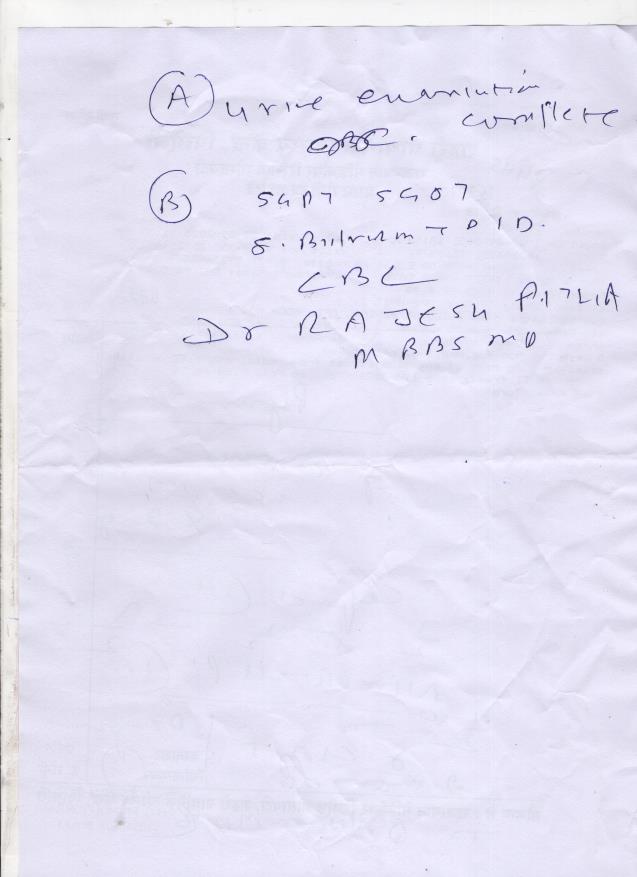 A urine examination
complete
CBC.
B SGPT SGOT
S. Bilirubin T D ID.
CBC
Dr RAJESH
MBBS MD